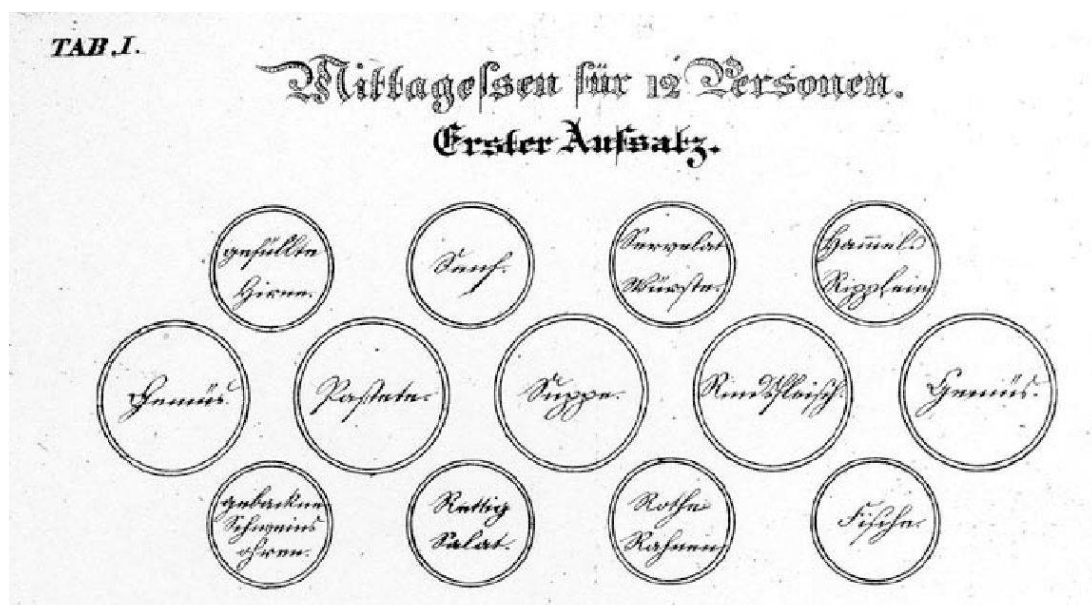 TAB. I.
Mittagessen für 12 Personen.
Erster Aufsatz.
gefüllte
Hirne.
Senf.
Servelat
Würste.
Ham̅el
Ripplein
Gemüs.
Pastete.
Suppe.
Rindsfleisch.
Gemüs.
gebackne
Schweins
ohren.
Rettig
Salat.
Rothe
Rahnen.
Fische.